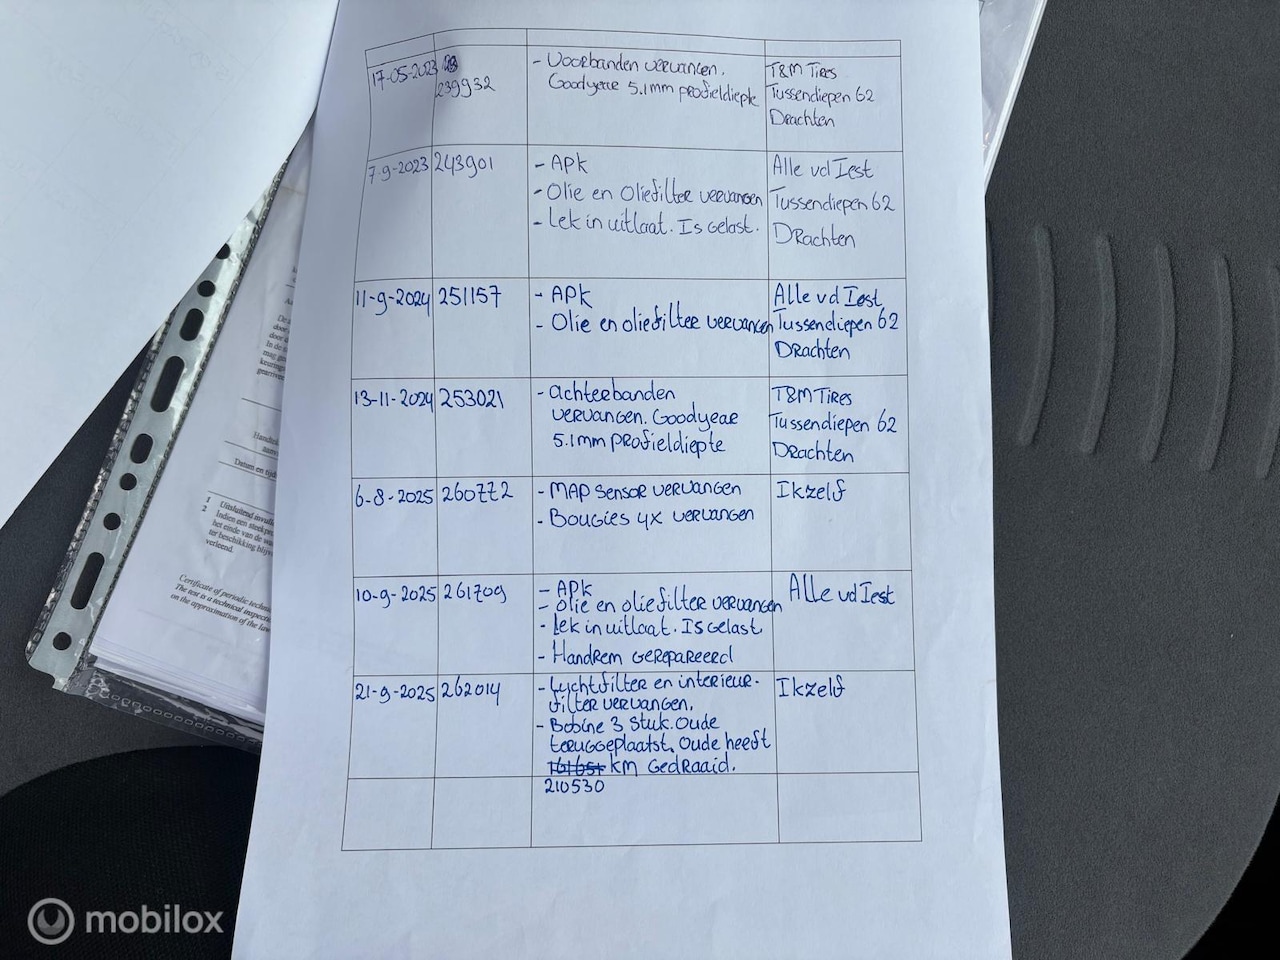 17-05-2023
239932
- Voorbanden vervangen.
Goodyear 5.1mm profieldiepte
T&M Tires
Tussendiepen 62
Drachten
7-9-2023
243901
- APK
- Olie en Oliefilter vervangen
- Lek in uitlaat. Is gelast.
Alle vd Iest
Tussendiepen 62
Drachten
11-9-2024
251157
- APK
- Olie en oliefilter vervangen
Alle vd Iest
Tussendiepen 62
Drachten
13-11-2024
253021
- achterbanden
vervangen. Goodyear
5.1mm profieldiepte
T&M Tires
Tussendiepen 62
Drachten
6-8-2025
260772
- MAP sensor vervangen
- Bougies 4x vervangen
Ikzelf
10-9-2025
261709
- APK
- olie en oliefilter vervangen
- Lek in uitlaat. Is gelast
- Handrem gerepareerd
Alle vd Iest
21-9-2025
262014
- Luchtfilter en interieur-
filter vervangen.
- Bobine 3 stuk. Oude
teruggeplaatst. Oude heeft
km gedraaid.
210530
Ikzelf
Datum en tijd
1 Uitsluitend
2 Indien een
het einde van de
ter beschikking
verleend.
Certificate of periodic
The test is a technical
on the approximation of the
mobilox